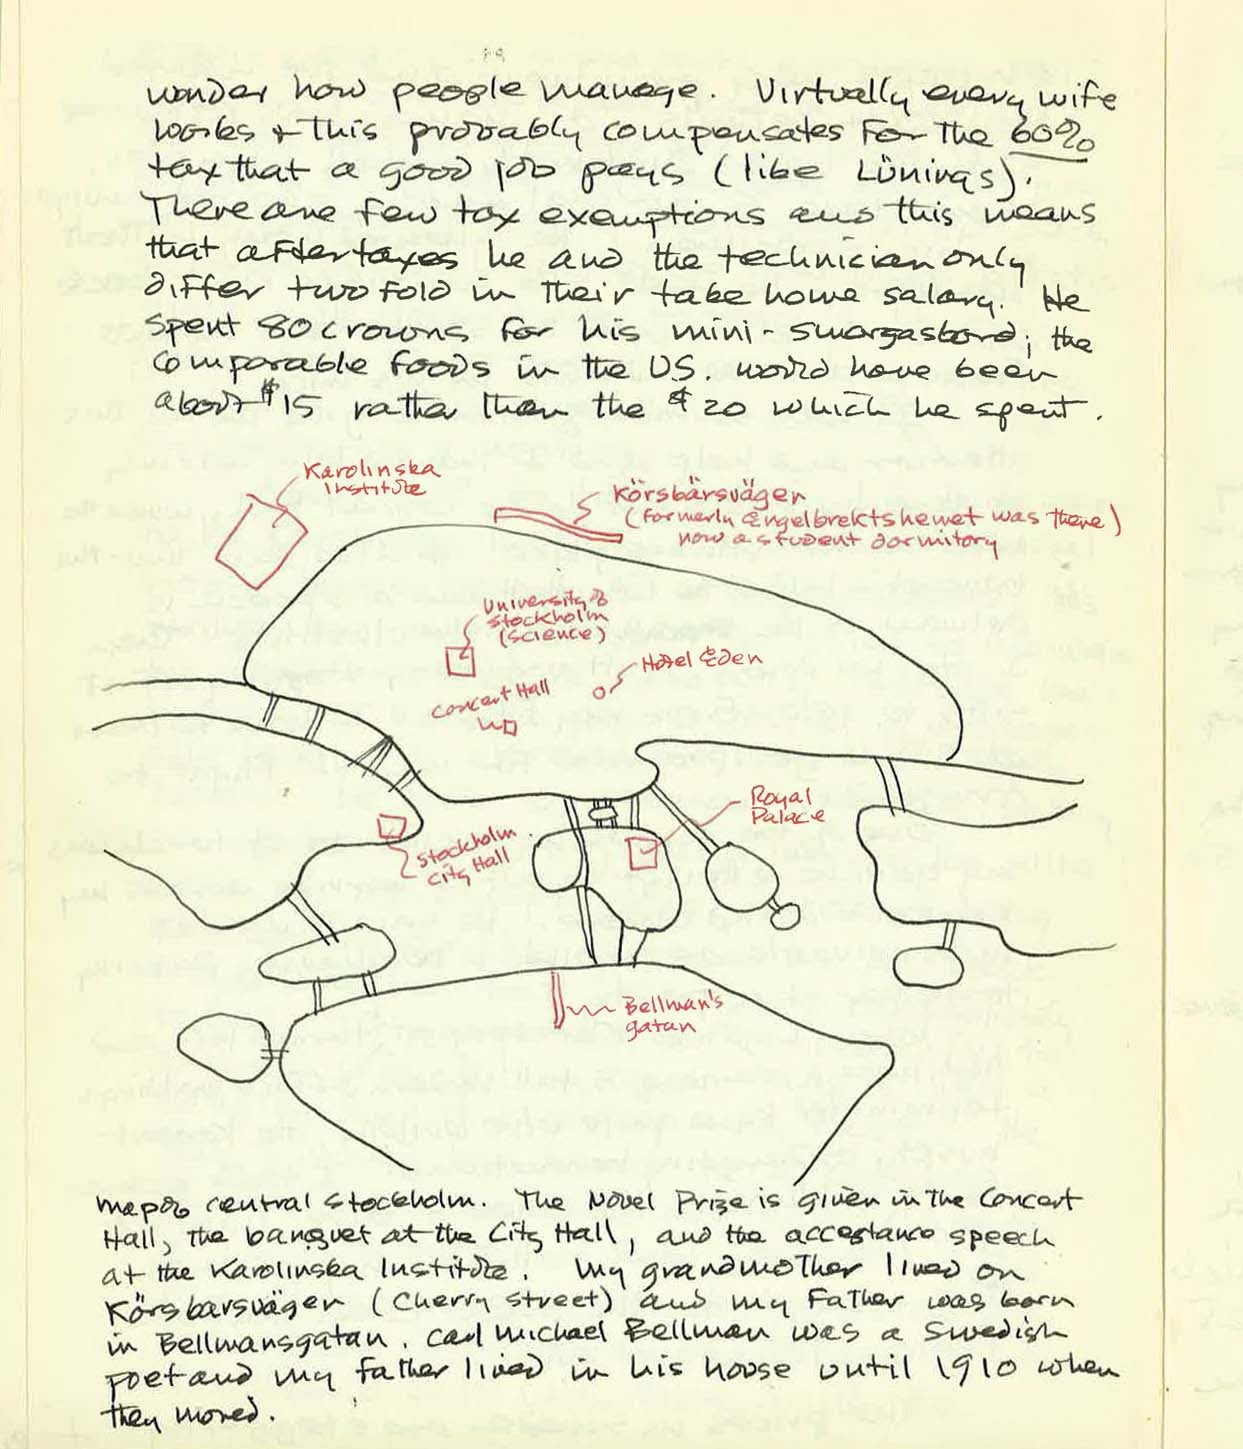 wonder how people manage. Virtually every wife
works + this probably compensates for the 60%
tax that a good job pays (like Lünings).
There are few tax exemptions and this means
that after taxes he and the technician only
differ two fold in their take home salary. He
spent 80 crowns for his mini-smorgasbord; the
comparable foods in the US. would have been
about $15 rather than the $20 which he spent.
Karolinska
Institute
Körsbärsvägen
(formerly Engelbrektshemet was there)
now a student dormitory
University of
Stockholm
(science)
Hotel Eden
Concert Hall
Royal
Palace
Stockholm
City Hall
Bellman's
gatan
map of central Stockholm. The Novel Prize is given in the Concert
Hall, the banquet at the City Hall, and the acceptance speech
at the Karolinska Institute. My grandmother lived on
Körsbarsvägen (Cherry street) and my Father was born
in Bellmansgatan. Carl Michael Bellman was a Swedish
poet and my father lived in his house until 1910 when
they moved.